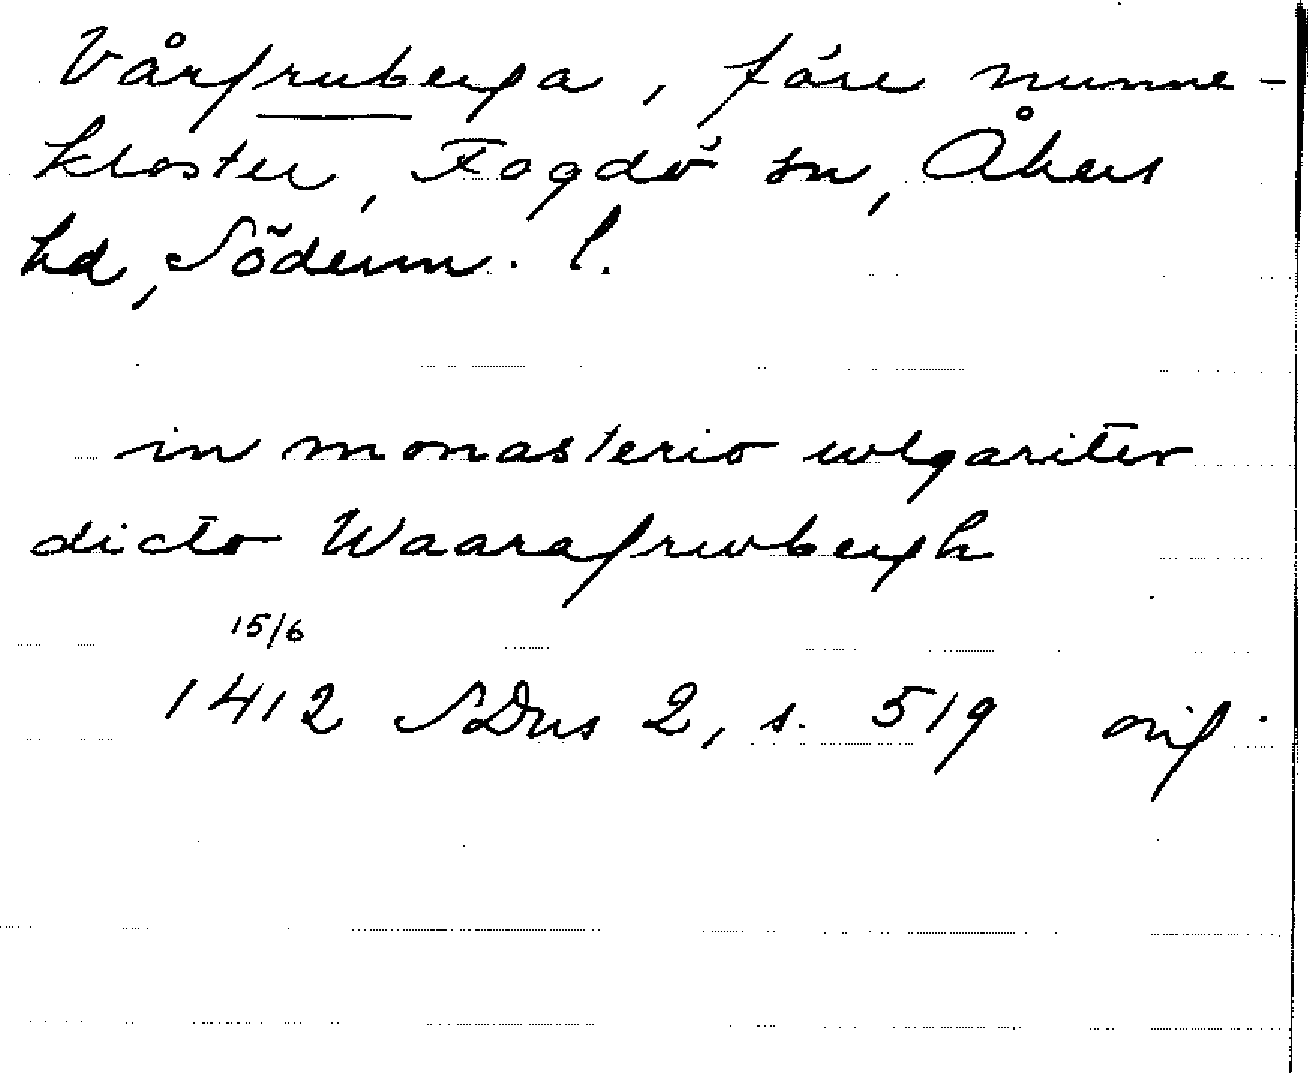 Vårfruberga, före nunne-
kloster, Fogdö sn, Åkers
hd, Söderm. l.
in monasterio wlgariter
dicto Waarafrwbergh
15/6
1412 SDns 2, s. 519 orig.